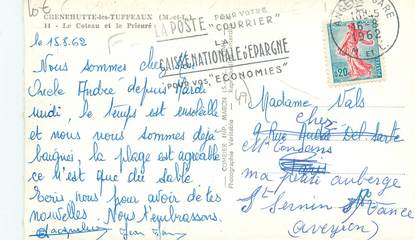 CHENEHUTTE-les-TUFFEAUX (M.-et-L.)
14 - Le Coteau et le Prieuré
le 15.8.62
Nous sommes chez
Oncle André depuis mardi
midi, le temps est ensoleillé
et nous nous sommes déjà
baignés, la plage est agréable
ce n'est que du sable.
Ecris nous pour avoir de tes
nouvelles. Nous t'embrassons.
Jacqueline Jean
LA POSTE POUR VOTRE
"COURRIER"
CAISSE NATIONALE D'EPARGNE
POUR VOS "ECONOMIES"
GARE
16-8
1962
M. et L.
0,20
Madame Vals
chez
9 Rue del Sarte
Mr
Paris
ma auberge
St Sernin S/ Rance
Aveyron